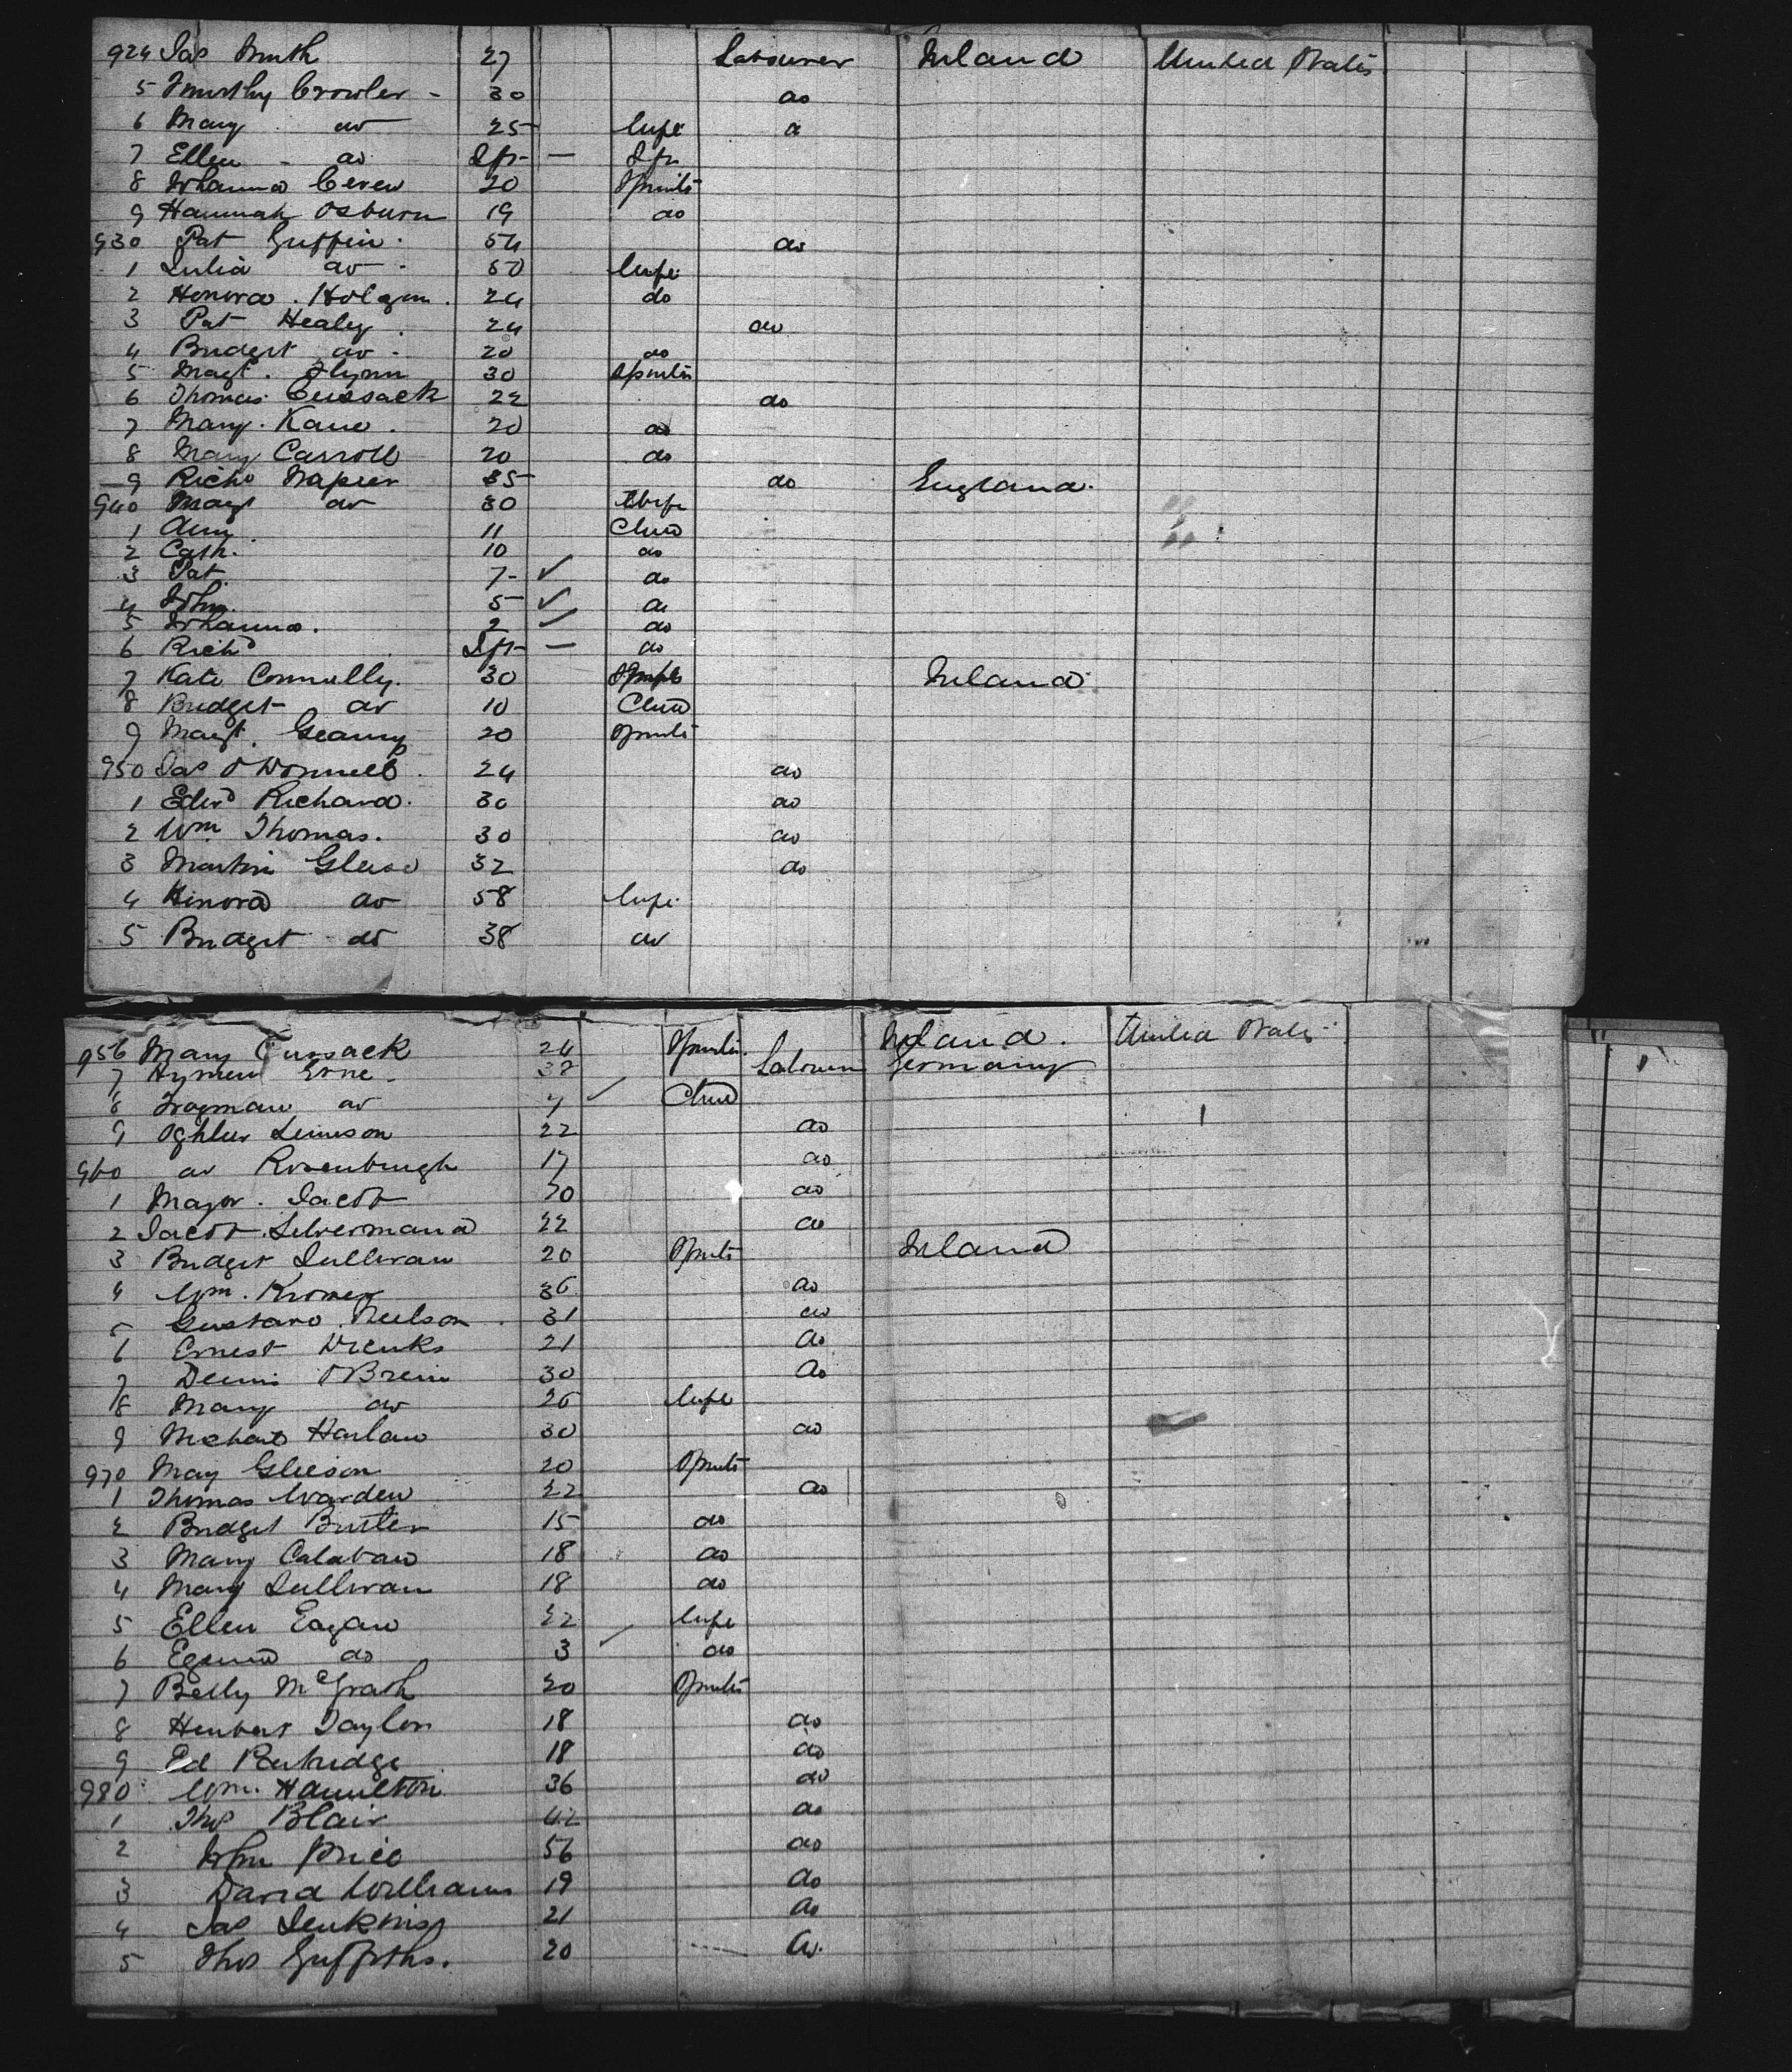 924 Jas Smith 27 Labourer Ireland United States
5 Timothy Crowler - 30 do
6 Mary do 25 Wife
7 Ellen - do Inft - Inft
8 Johanna Ceren 20 Spinster
9 Hannah Osburn 19 do
930 Pat Griffin 54 do
1 Julia do 50 Wife
2 Honora 24 do
3 Pat Healy 24 do
4 Bridget do 20 do
5 Magt. Flynn 30 Spinster
6 Thomas Cussack 22 do
7 Mary Kane 20 do
8 Mary Carroll 20 do
9 Richd Napier 35 do England
940 Magt do 30 Wife
1 Amy 11 Child
2 Cath. 10 do
3 Pat 7 ✓ do
4 John 5 ✓ do
5 Johanna. 2 ✓ do
6 Richd Inft - do
7 Kate Connelly. 30 Ireland
8 Bridget do 10 Child
9 Magt. Geany 20 Spinster
950 Jas O'Donnell 24 do
1 Edwd Richard. 30 do
2 Wm Thomas. 30 do
3 Martin 32 do
4 Honora do 58 Wife
5 Bridget do 38 do
956 Mary Cussack 24 Spinster Ireland United States
7 Hymen Erne 38 Labourer Germany
8 do ✓ Child
9 22 do
960 do Rosenburgh 17 do
1 Major Jacob do
2 Jacob Silvermand 22 do
3 Bridget Sullivan 20 Spinster Ireland
4 Wm. 36 do
5 Gustavo Neilson 31 do
6 Ernest 21 do
7 Dennis O'Brein 30 do
8 Mary do 26 Wife
9 Michael Harlan 30 do
970 May Gleeson 20 Spinster
1 Thomas Warden 22 do
2 Bridget 15 do
3 Mary 18 do
4 Mary Sullivan 18 do
5 Ellen Eagan 22 Wife
6 do 3 ✓ do
7 Betty McGrath 20 Spinster
8 Herbert Taylor 18 do
9 Ed Partridge 18 do
980 Wm. Hamilton 36 do
1 Thos Blair 42 do
2 John Price 56 do
3 David Williams 19 do
4 Jas Jenkins 21 do
5 Thos Griffiths. 20 do